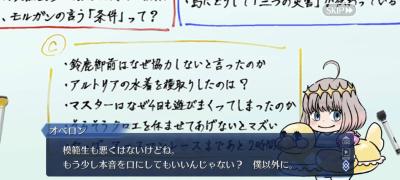 、モルガンの言う「条件」って?
SKIP
・鈴鹿御前はなぜ協力しないと言ったのか
・アルトリアの水着を横取りしたのは?
・マスターはなぜ4日も遊びまくってしまったのか
そろそろクロエを休ませてあげないとマズい
レースまであと2時間
オベロン
模範生も悪くはないけどね。
もう少し本音を口にしてもいいんじゃない? 僕以外に。